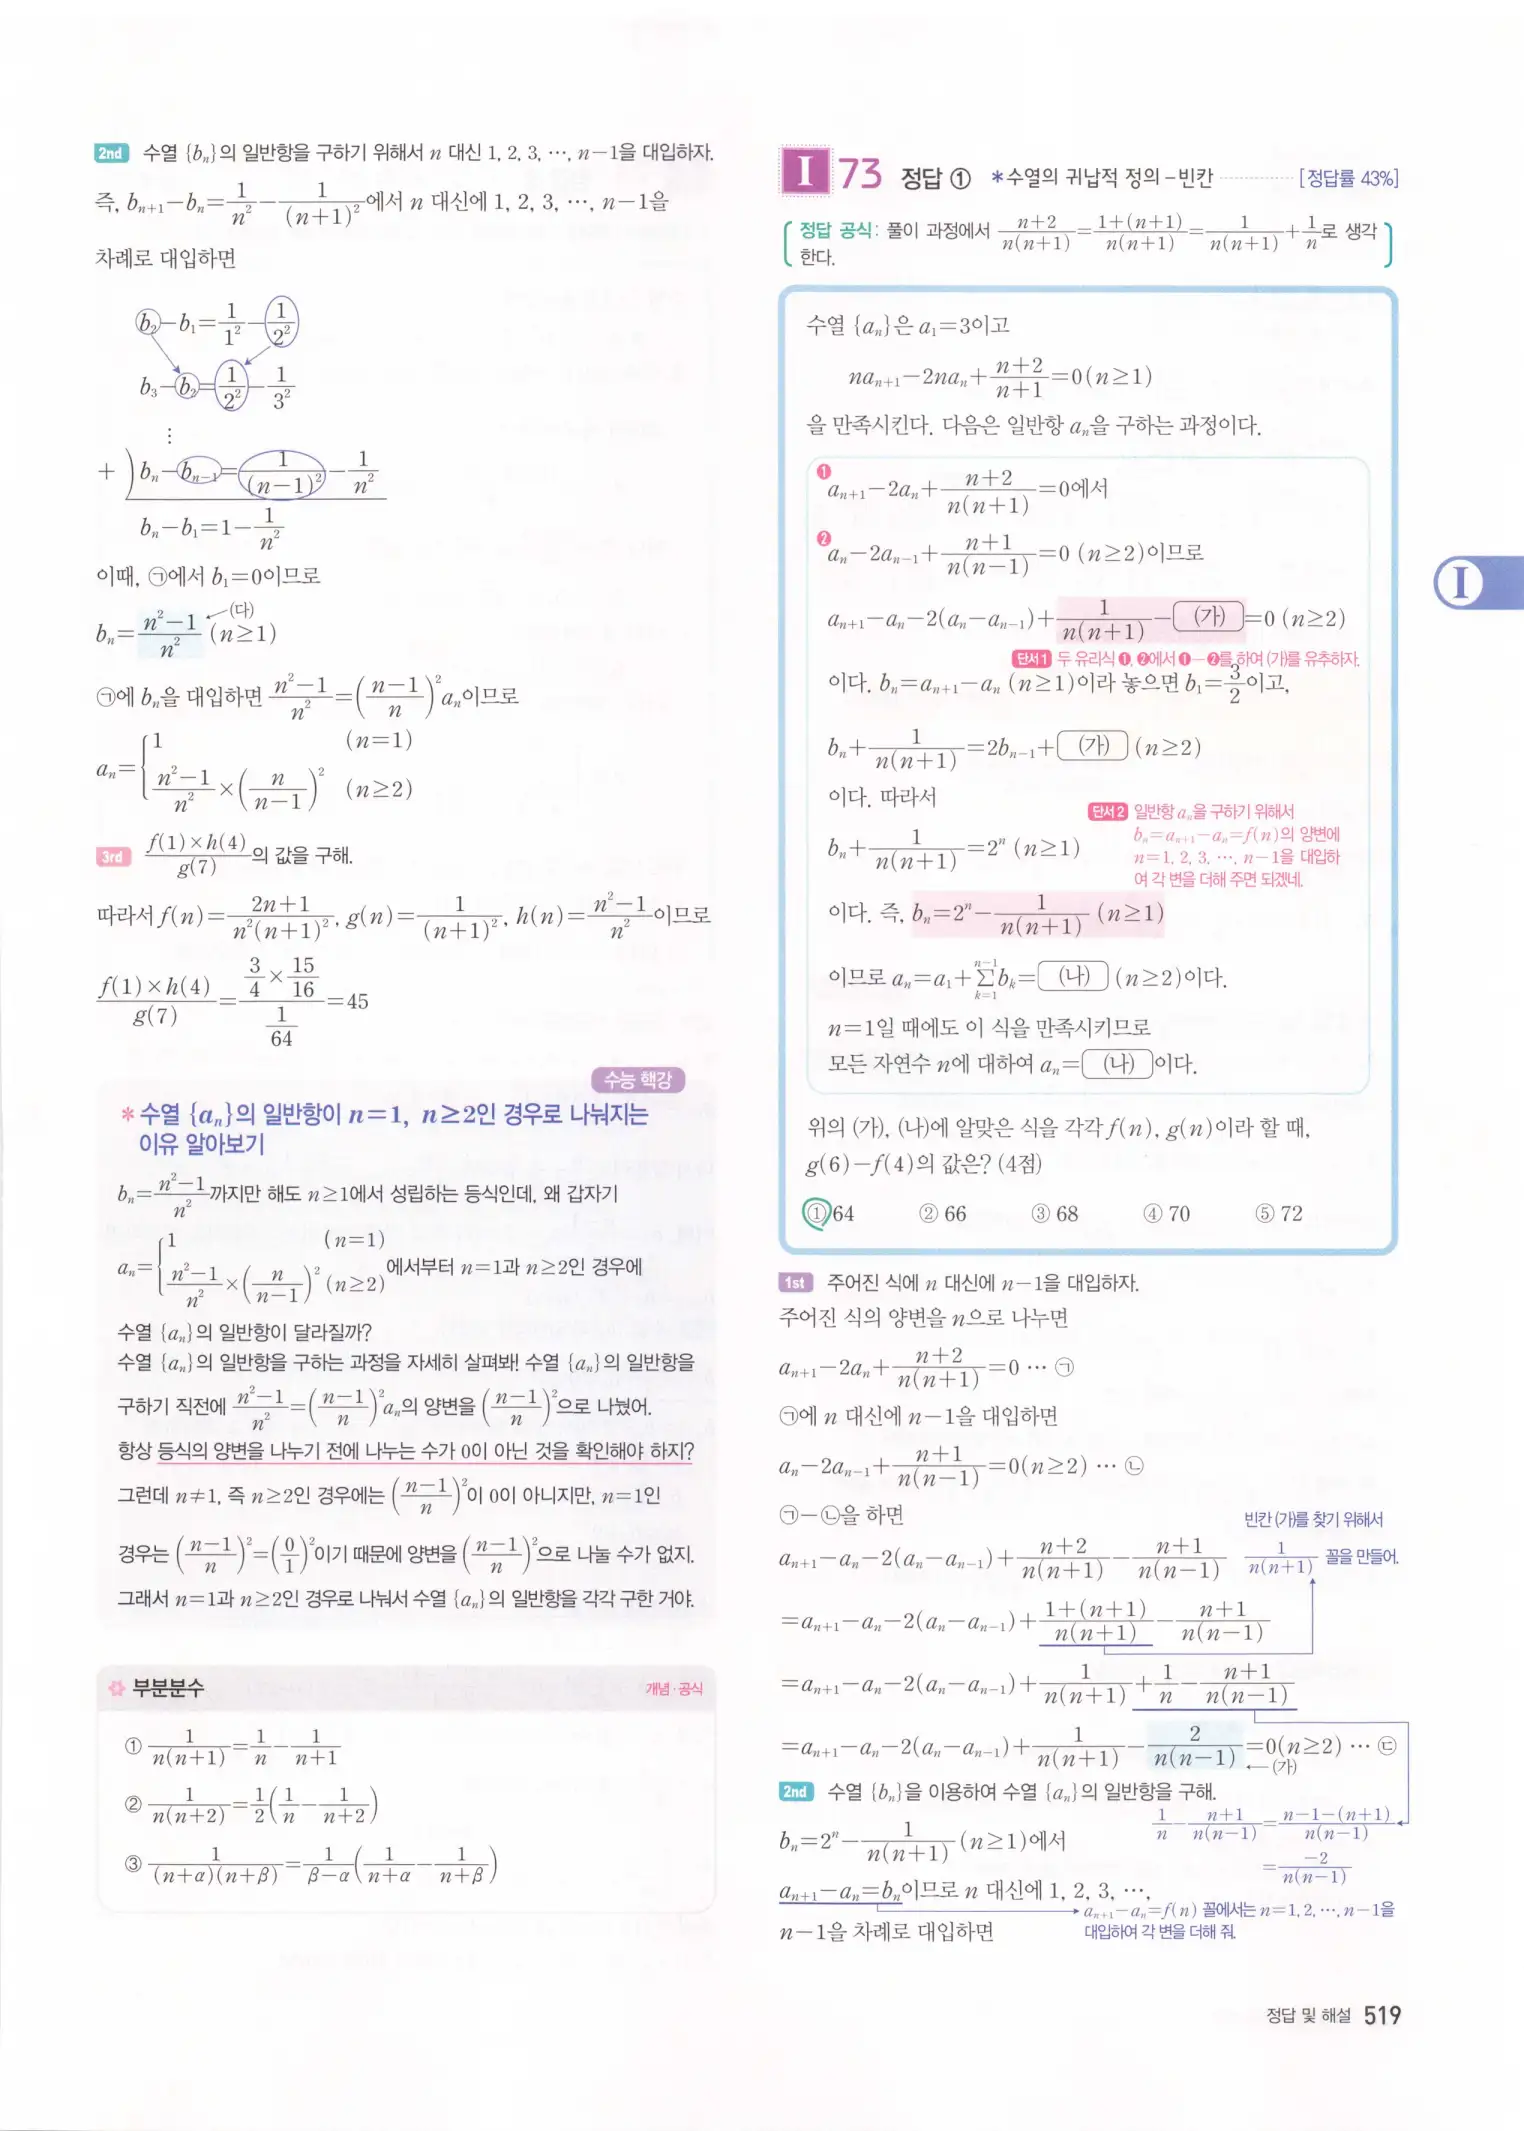 2nd 수열 {bₙ}의 일반항을 구하기 위해서 n 대신 1, 2, 3, ⋯, n−1을 대입하자.
즉, bₙ₊₁−bₙ=1/n²−1/(n+1)²에서 n 대신에 1, 2, 3, ⋯, n−1을
차례로 대입하면
b₂−b₁=1/1²−1/2²
b₃−b₂=1/2²−1/3²
⋮
+ ) bₙ−bₙ₋₁=1/(n−1)²−1/n²
bₙ−b₁=1−1/n²
이때, ㉠에서 b₁=0이므로
bₙ=(n²−1)/n² (n≥1) (다)
㉠에 bₙ을 대입하면 (n²−1)/n²=((n−1)/n)²aₙ이므로
aₙ={1 (n=1)
(n²−1)/n²×(n/(n−1))² (n≥2)
3rd f(1)×h(4)/g(7)의 값을 구해.
따라서 f(n)=(2n+1)/(n²(n+1)²), g(n)=1/(n+1)², h(n)=(n²−1)/n²이므로
f(1)×h(4)/g(7)=(3/4×15/16)/(1/64)=45
수능 핵강
* 수열 {aₙ}의 일반항이 n=1, n≥2인 경우로 나눠지는
이유 알아보기
bₙ=(n²−1)/n²까지만 해도 n≥1에서 성립하는 등식인데, 왜 갑자기
aₙ={1 (n=1)
(n²−1)/n²×(n/(n−1))² (n≥2)에서부터 n=1과 n≥2인 경우에
수열 {aₙ}의 일반항이 달라질까?
수열 {aₙ}의 일반항을 구하는 과정을 자세히 살펴봐! 수열 {aₙ}의 일반항을
구하기 직전에 (n²−1)/n²=((n−1)/n)²aₙ의 양변을 ((n−1)/n)²으로 나눴어.
항상 등식의 양변을 나누기 전에 나누는 수가 0이 아닌 것을 확인해야 하지?
그런데 n≠1, 즉 n≥2인 경우에는 ((n−1)/n)²이 0이 아니지만, n=1인
경우는 ((n−1)/n)²=(0/1)²이기 때문에 양변을 ((n−1)/n)²으로 나눌 수가 없지.
그래서 n=1과 n≥2인 경우로 나눠서 수열 {aₙ}의 일반항을 각각 구한 거야.
부분분수 개념·공식
① 1/(n(n+1))=1/n−1/(n+1)
② 1/(n(n+2))=1/2(1/n−1/(n+2))
③ 1/((n+α)(n+β))=1/(β−α)(1/(n+α)−1/(n+β))
I 73 정답 ① *수열의 귀납적 정의−빈칸 [정답률 43%]
정답 공식: 풀이 과정에서 (n+2)/(n(n+1))=(1+(n+1))/(n(n+1))=1/(n(n+1))+1/n로 생각
한다.
수열 {aₙ}은 a₁=3이고
naₙ₊₁−2naₙ+(n+2)/(n+1)=0(n≥1)
을 만족시킨다. 다음은 일반항 aₙ을 구하는 과정이다.
❶ aₙ₊₁−2aₙ+(n+2)/(n(n+1))=0에서
❷ aₙ−2aₙ₋₁+(n+1)/(n(n−1))=0 (n≥2)이므로
aₙ₊₁−aₙ−2(aₙ−aₙ₋₁)+1/(n(n+1))−(가)=0 (n≥2)
단서1 두 유리식 ❶, ❷에서 ❶−❷를 하여 (가)를 유추하자.
이다. bₙ=aₙ₊₁−aₙ (n≥1)이라 놓으면 b₁=3/2이고,
bₙ+1/(n(n+1))=2bₙ₋₁+(가) (n≥2)
이다. 따라서
bₙ+1/(n(n+1))=2ⁿ (n≥1)
단서2 일반항 aₙ을 구하기 위해서
bₙ=aₙ₊₁−aₙ=f(n)의 양변에
n=1, 2, 3, ⋯, n−1을 대입하
여 각 변을 더해 주면 되겠네.
이다. 즉, bₙ=2ⁿ−1/(n(n+1)) (n≥1)
이므로 aₙ=a₁+∑ₖ₌₁ⁿ⁻¹bₖ=(나) (n≥2)이다.
n=1일 때에도 이 식을 만족시키므로
모든 자연수 n에 대하여 aₙ=(나)이다.
위의 (가), (나)에 알맞은 식을 각각 f(n), g(n)이라 할 때,
g(6)−f(4)의 값은? (4점)
① 64 ② 66 ③ 68 ④ 70 ⑤ 72
1st 주어진 식에 n 대신에 n−1을 대입하자.
주어진 식의 양변을 n으로 나누면
aₙ₊₁−2aₙ+(n+2)/(n(n+1))=0 ⋯ ㉠
㉠에 n 대신에 n−1을 대입하면
aₙ−2aₙ₋₁+(n+1)/(n(n−1))=0(n≥2) ⋯ ㉡
㉠−㉡을 하면
빈칸 (가)를 찾기 위해서
1/(n(n+1)) 꼴을 만들어.
aₙ₊₁−aₙ−2(aₙ−aₙ₋₁)+(n+2)/(n(n+1))−(n+1)/(n(n−1))
=aₙ₊₁−aₙ−2(aₙ−aₙ₋₁)+(1+(n+1))/(n(n+1))−(n+1)/(n(n−1))
=aₙ₊₁−aₙ−2(aₙ−aₙ₋₁)+1/(n(n+1))+1/n−(n+1)/(n(n−1))
=aₙ₊₁−aₙ−2(aₙ−aₙ₋₁)+1/(n(n+1))−2/(n(n−1))=0(n≥2) ⋯ ㉢
(가)
2nd 수열 {bₙ}을 이용하여 수열 {aₙ}의 일반항을 구해.
1/n−(n+1)/(n(n−1))=(n−1−(n+1))/(n(n−1))
=−2/(n(n−1))
bₙ=2ⁿ−1/(n(n+1))(n≥1)에서
aₙ₊₁−aₙ=bₙ이므로 n 대신에 1, 2, 3, ⋯,
aₙ₊₁−aₙ=f(n) 꼴에서는 n=1, 2, ⋯, n−1을
대입하여 각 변을 더해 줘.
n−1을 차례로 대입하면
I
정답 및 해설 519